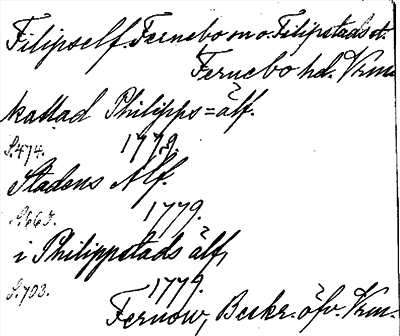 Filipself. Fernebo m o. Filipstads st.
Fernebo hd. Vrm.
kallad Philipps=älf.
S. 474. 1779.
Stadens Alf.
S. 663. 1779.
i Philippstads älf,
S. 703. 1779.
Fernow, Beskr. öfv. Vrm.